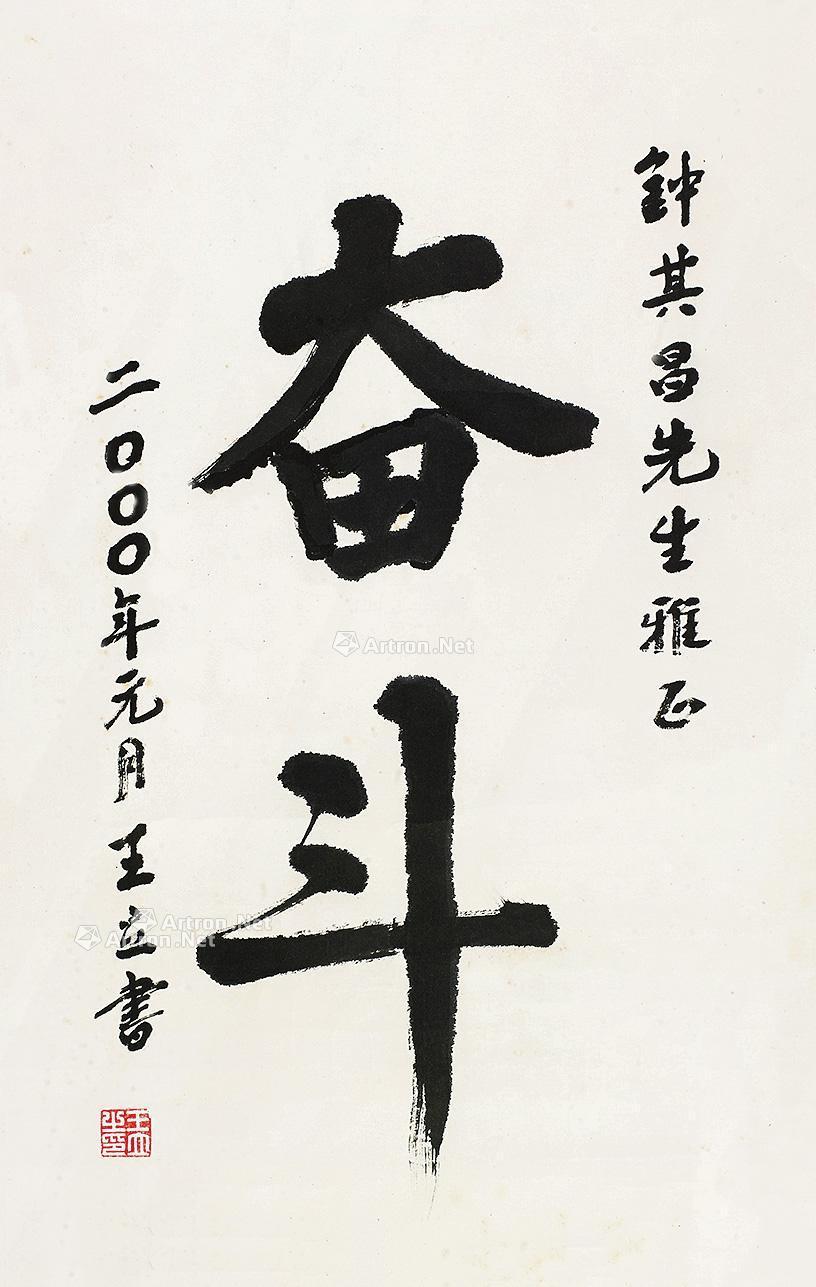 鈡其昌先生雅正
奋斗
二〇〇〇年元月王立书
王立之印
Artron.Net
Artron.Net
Artron.Net